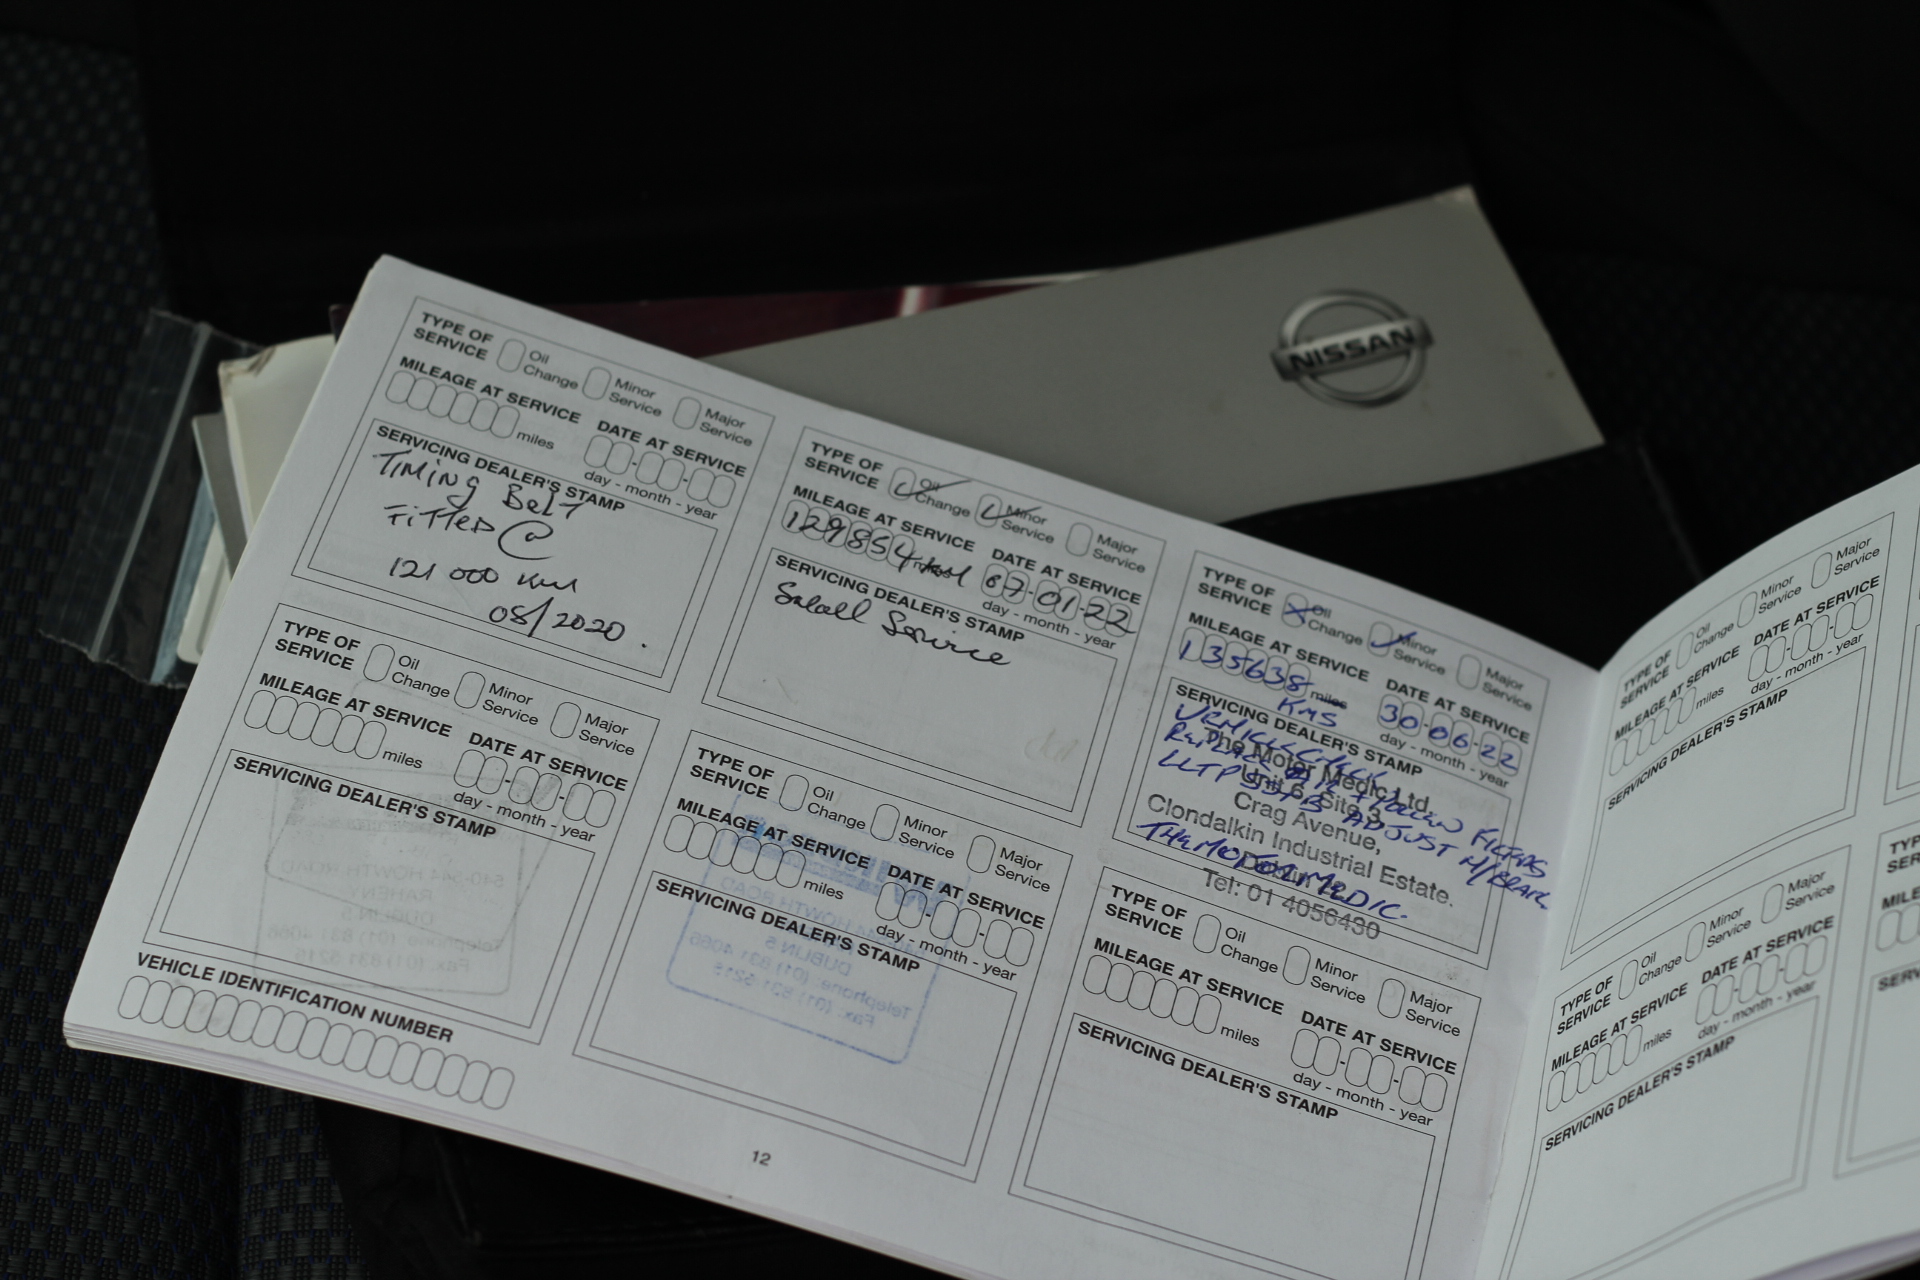 NISSAN
TYPE OF SERVICE Oil Change Minor Service Major Service
MILEAGE AT SERVICE miles
DATE AT SERVICE day - month - year
SERVICING DEALER'S STAMP
TIMING BELT
FITTED @
121 000 km
08/2020.
TYPE OF SERVICE Oil Change Minor Service Major Service
MILEAGE AT SERVICE 129854 miles KM
DATE AT SERVICE 07-01-22 day - month - year
SERVICING DEALER'S STAMP
Small Service
TYPE OF SERVICE Oil Change Minor Service Major Service
MILEAGE AT SERVICE 135638 miles KMS
DATE AT SERVICE 30-06-22 day - month - year
SERVICING DEALER'S STAMP
The Motor Medic Ltd.
Unit 6, Site 3,
Crag Avenue,
Clondalkin Industrial Estate.
Dublin
Tel: 01 4056430
POLLEN FILTERS
ADJUST H/BRAKE
THE MOTOR MEDIC.
TYPE OF SERVICE Oil Change Minor Service Major Service
MILEAGE AT SERVICE miles
DATE AT SERVICE day - month - year
SERVICING DEALER'S STAMP
TYPE OF SERVICE Oil Change Minor Service Major Service
MILEAGE AT SERVICE miles
DATE AT SERVICE day - month - year
SERVICING DEALER'S STAMP
TYPE OF SERVICE Oil Change Minor Service Major Service
MILEAGE AT SERVICE miles
DATE AT SERVICE day - month - year
SERVICING DEALER'S STAMP
VEHICLE IDENTIFICATION NUMBER
12
TYPE OF SERVICE Oil Change Minor Service Major Service
MILEAGE AT SERVICE miles
DATE AT SERVICE day - month - year
SERVICING DEALER'S STAMP
TYPE OF SERVICE Oil Change Minor Service Major Service
MILEAGE AT SERVICE miles
DATE AT SERVICE day - month - year
SERVICING DEALER'S STAMP